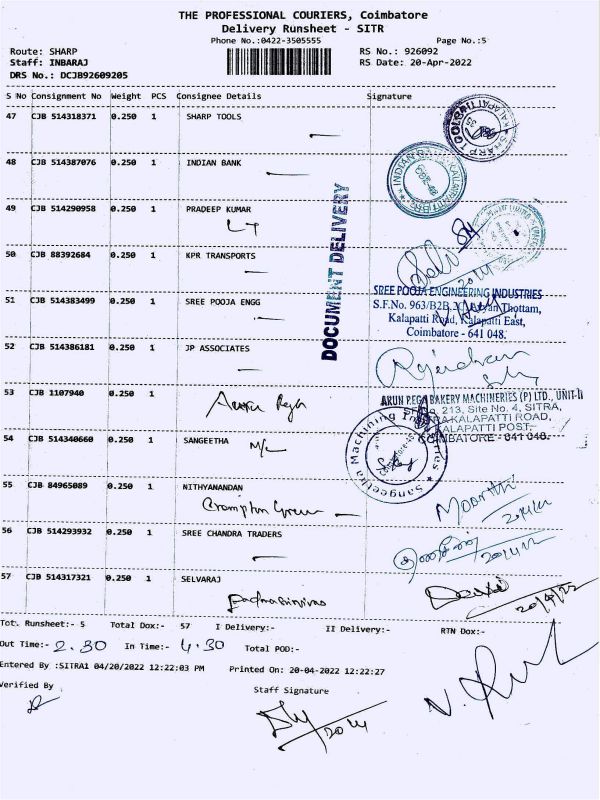 THE PROFESSIONAL COURIERS, Coimbatore
Delivery Runsheet - SITR
Phone No.:0422-3505555 Page No.:5
Route: SHARP RS No.: 926092
Staff: INBARAJ RS Date: 20-Apr-2022
DRS No.: DCJB92609205
S No Consignment No Weight PCS Consignee Details Signature
47 CJB 514318371 0.250 1 SHARP TOOLS
48 CJB 514387076 0.250 1 INDIAN BANK
49 CJB 514290958 0.250 1 PRADEEP KUMAR
50 CJB 88392684 0.250 1 KPR TRANSPORTS
DOCUMENT DELIVERY
51 CJB 514383499 0.250 1 SREE POOJA ENGG
SREE POOJA ENGINEERING INDUSTRIES
S.F.No. 963/B2B, Thottam,
Kalapatti Road, Kalapatti East,
Coimbatore - 641 048.
52 CJB 514386181 0.250 1 JP ASSOCIATES
Rajendran
53 CJB 1107940 0.250 1
ARUN REGA BAKERY MACHINERIES (P) LTD., UNIT-II
213, Site No. 4, SITRA,
KALAPATTI ROAD,
KALAPATTI POST,
COIMBATORE - 641 048.
54 CJB 514340660 0.250 1 SANGEETHA
M/c
Sangeetha Machining Industries
55 CJB 84965089 0.250 1 NITHYANANDAN
Crompton Greaves
Moorthi
20/4/22
56 CJB 514293932 0.250 1 SREE CHANDRA TRADERS
20/4/22
57 CJB 514317321 0.250 1 SELVARAJ
Padmasrinivas
20/4/22
Tot. Runsheet:- 5 Total Dox:- 57 I Delivery:- II Delivery:- RTN Dox:-
Out Time:- 2.30 In Time:- 4.30 Total POD:-
Entered By :SITRA1 04/20/2022 12:22:03 PM Printed On: 20-04-2022 12:22:27
Verified By Staff Signature